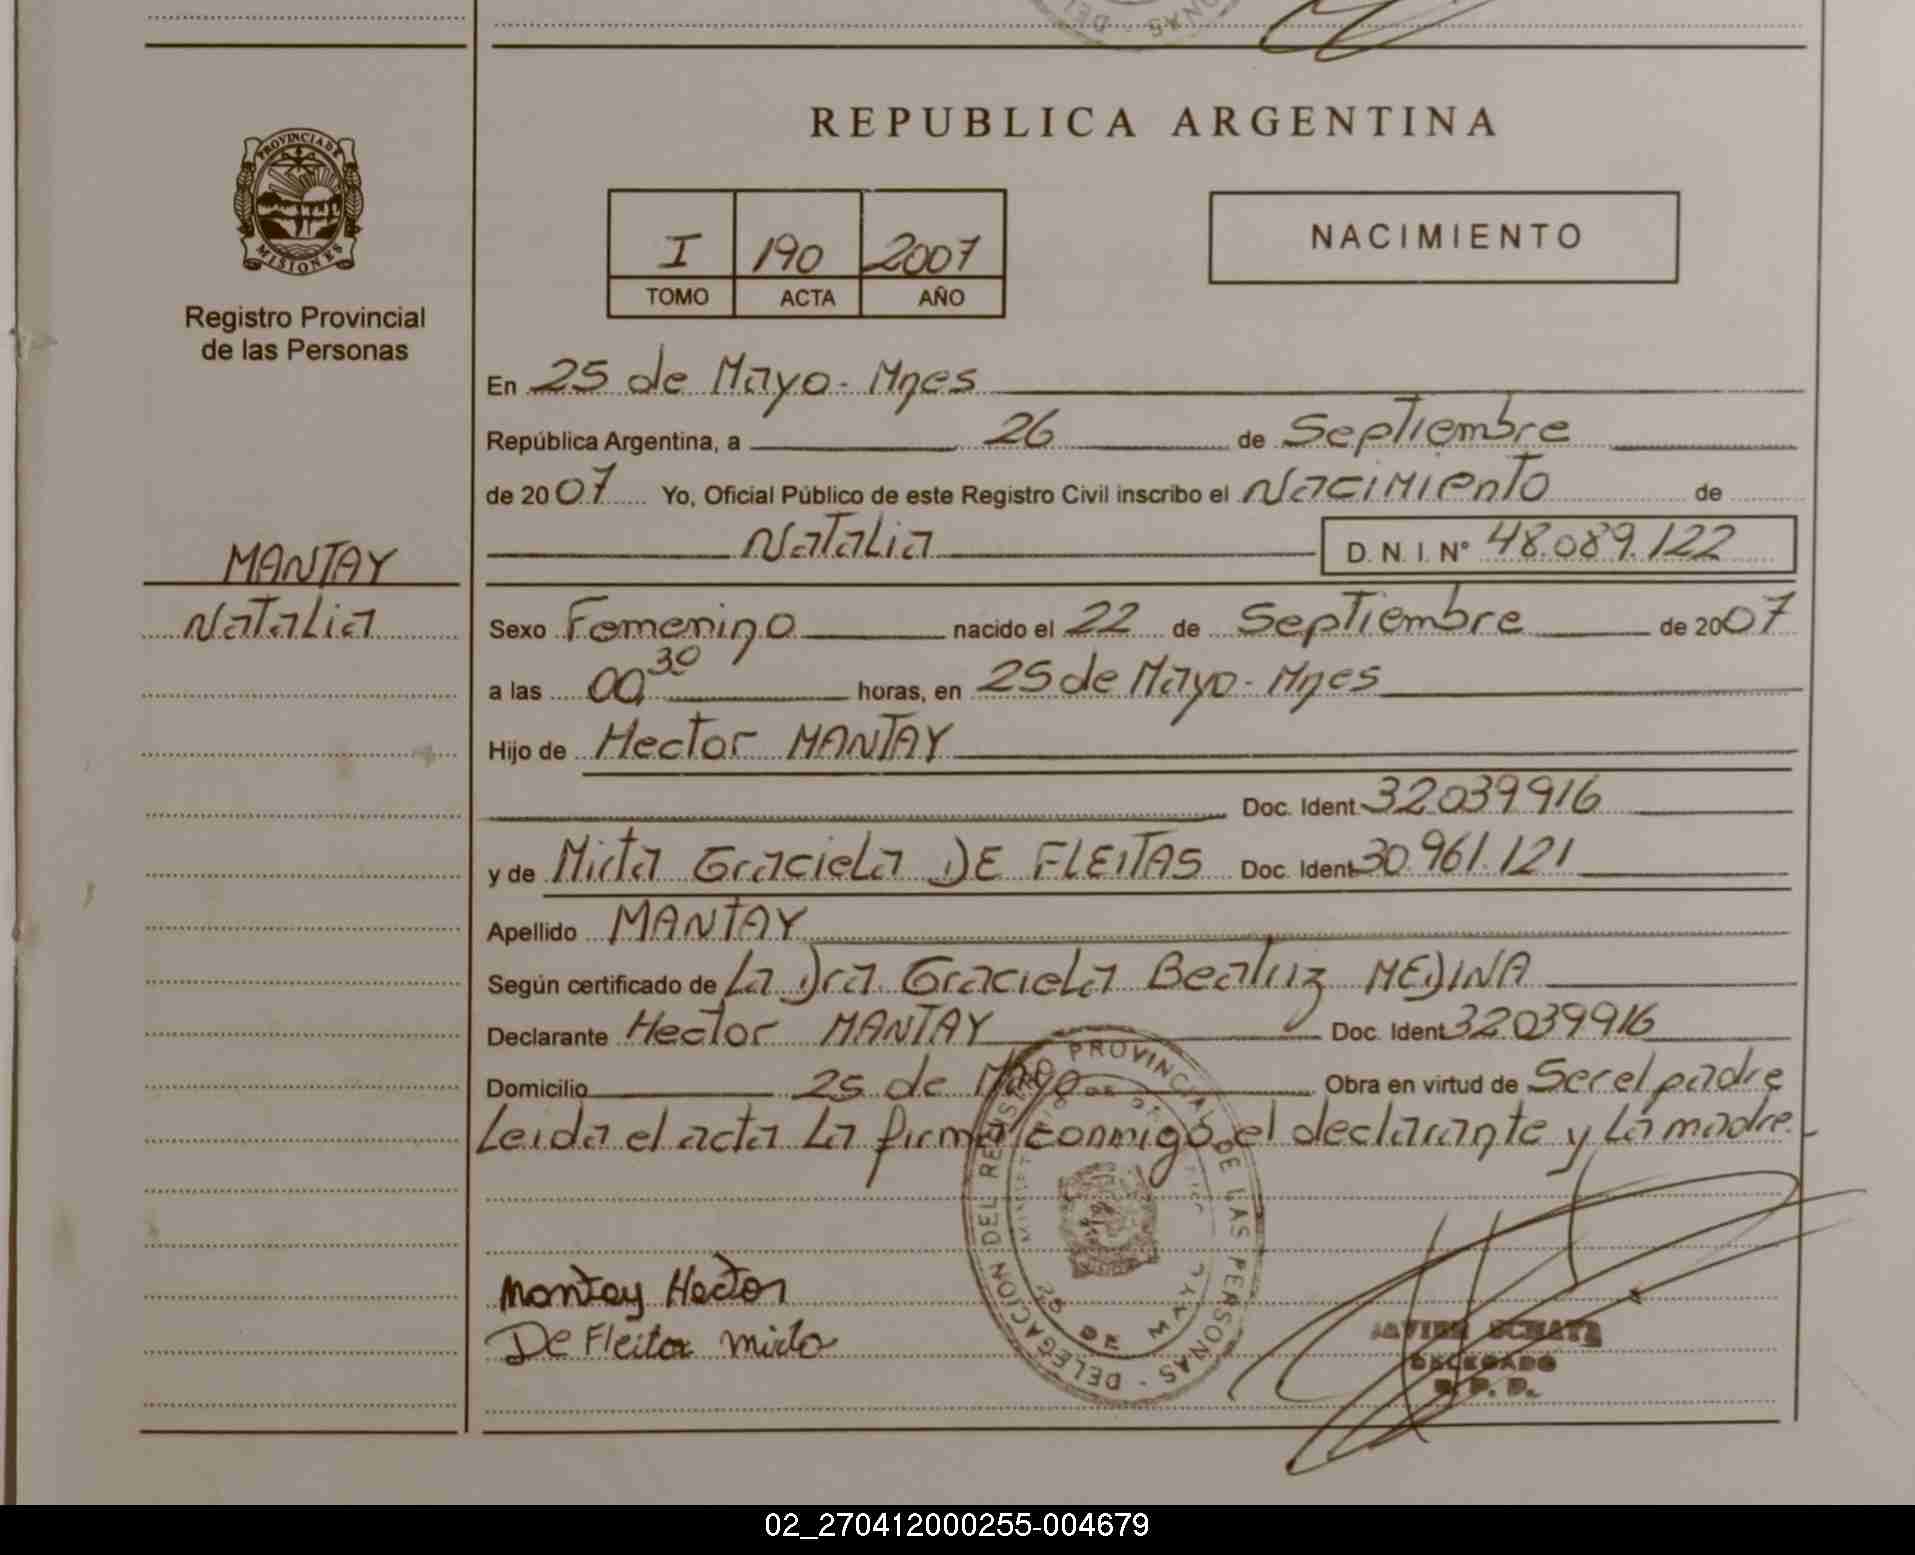 REPUBLICA ARGENTINA
PROVINCIA DE
MISIONES
Registro Provincial
de las Personas
I 190 2007
TOMO ACTA AÑO
NACIMIENTO
En 25 de Mayo - Mnes
República Argentina, a 26 de Septiembre
de 2007 Yo, Oficial Público de este Registro Civil inscribo el Nacimiento de
Natalia D. N. I. N° 48.089.122
MANTAY
Natalia
Sexo Femenino nacido el 22 de Septiembre de 2007
a las 00,30 horas, en 25 de Mayo - Mnes
Hijo de Hector MANTAY
Doc. Ident. 32039916
y de Mirta Graciela DE FLEITAS Doc. Ident. 30.961.121
Apellido MANTAY
Según certificado de La Dra. Graciela Beatriz MEDINA
Declarante Hector MANTAY Doc. Ident. 32039916
Domicilio 25 de Mayo Obra en virtud de Ser el padre
Leida el acta La firma conmigo el declarante y La madre.-
DELEGACION DEL REGISTRO PROVINCIAL DE LAS PERSONAS -
25 DE MAYO
Mantay Hector
De Fleitas mirta
JAVIER
DELEGADO
R. P. P.
02_270412000255-004679